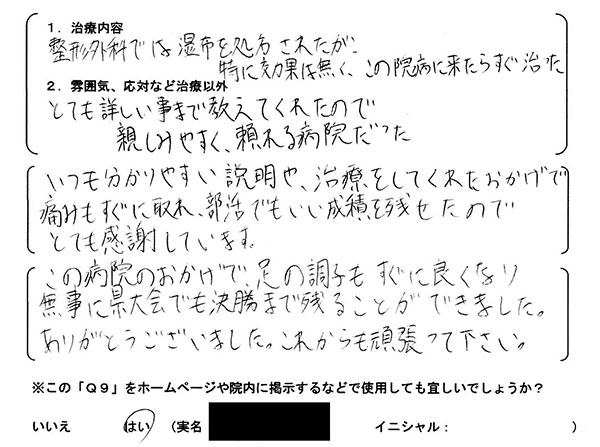 1．治療内容
整形外科では湿布を処方されたが、
特に効果は無く、この院病に来たらすぐ治った
2．雰囲気、応対など治療以外
とても詳しい事まで教えてくれたので
親しみやすく、頼れる病院だった
いつも分かりやすい説明や、治療をしてくれたおかげで
痛みもすぐに取れ、部活でもいい成積を残せたので
とても感謝しています。
この病院のおかげで、足の調子もすぐに良くなり
無事に県大会でも決勝まで残ることができました。
ありがとうございました。これからも頑張って下さい。
※この「Q9」をホームページや院内に掲示するなどで使用しても宜しいでしょうか？
いいえ　はい　（実名　イニシャル：　）